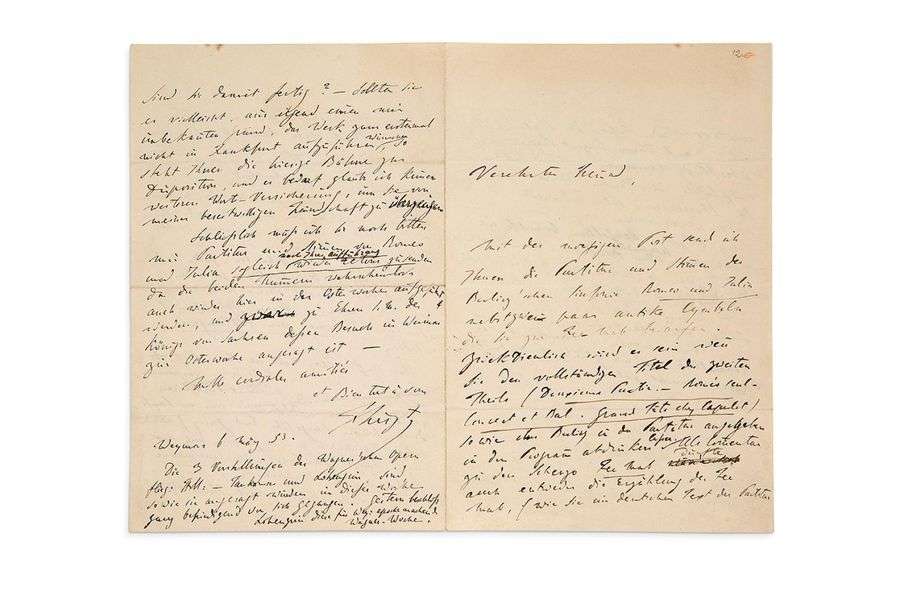 Sind Sie damit fertig? – Sollten Sie
es vielleicht, aus irgend einen mir
unbekannten Grund, das Werk zum erstenmal
nicht in Frankfurt aufführen wünschen, so
steht Ihnen die hiesige Bühne zur
Disposition, und es bedarf glaub ich keiner
weiteren Wort-Versicherung, um Sie von
meiner bereitwilligen Freundschaft zu überzeugen
Schließlich muß ich Sie noch bitten
mir Partitur und Stimmen von Romeo
und Julia sogleich nach Ihrer Aufführung wieder zusenden
da die beiden Nummern wahrscheinlich
auch wieder hier in der Osterwoche aufgeführt
werden, und zu Ehren S. M. des
Königs von Sachsen dessen Besuch in Weimar
zur Osterwoche angesagt ist —
Mille cordiales amitiés
et Bientot à vous
FLiszt
Weymar 6 März 53.
Die 3 Vorstellungen der Wagner'schen Opern
flieg: Holl: – Tanhauser und Lohengrin sind
so wie sie angesagt wurden in dieser Woche
ganz befriedigend vor sich gegangen. Gestern beschloß
Lohengrin diese für uns epochemachende
Wagner-Woche.
12
Verehrter Freund,
Mit der morgigen Post send ich
Ihnen die Partitur und Stimmen der
Berlioz'schen Sinfonie Romeo und Julia
nebst zwei paar antike Cymbeln
die Sie
Zweckdienlich wird es sein wenn
Sie den vollständigen Titel des zweiten
Theils (Deuxieme Partie – Roméo seul –
Concert et Bal. Grand Fête chez Capulet)
so wie ihn Berlioz in der Partitur angegeben
in dem Program abdrucken lassen. Als Comentar
zu dem Scherzo Fee Mab dürfte
auch entweder die Erzählung der Fee
Mab, (wie sie im deutschen Text der Partitur